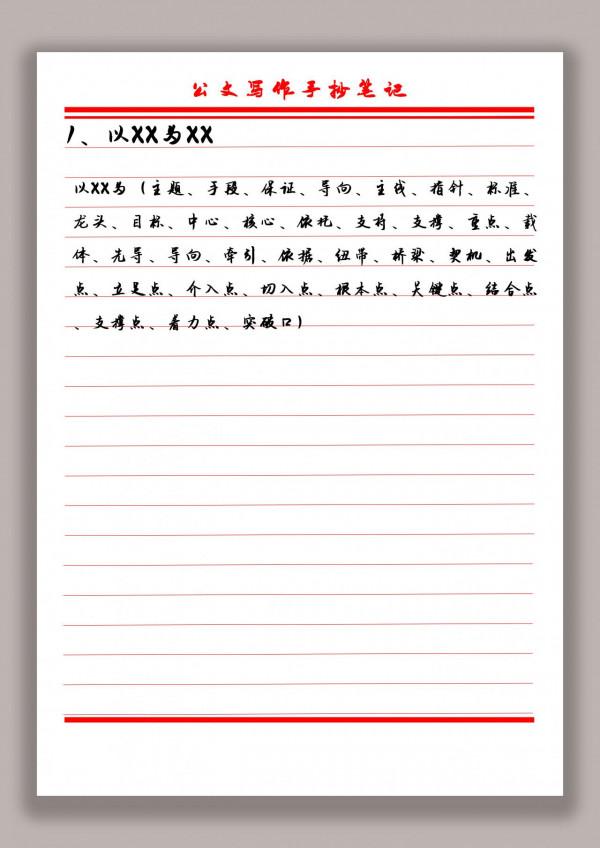 公文写作手抄笔记
1、以XX为XX
以XX为（主题、手段、保证、导向、主线、指针、标准、
龙头、目标、中心、核心、依托、支持、支撑、重点、载
体、先导、导向、牵引、依据、纽带、桥梁、契机、出发
点、立足点、介入点、切入点、根本点、关键点、结合点
、支撑点、着力点、突破口）